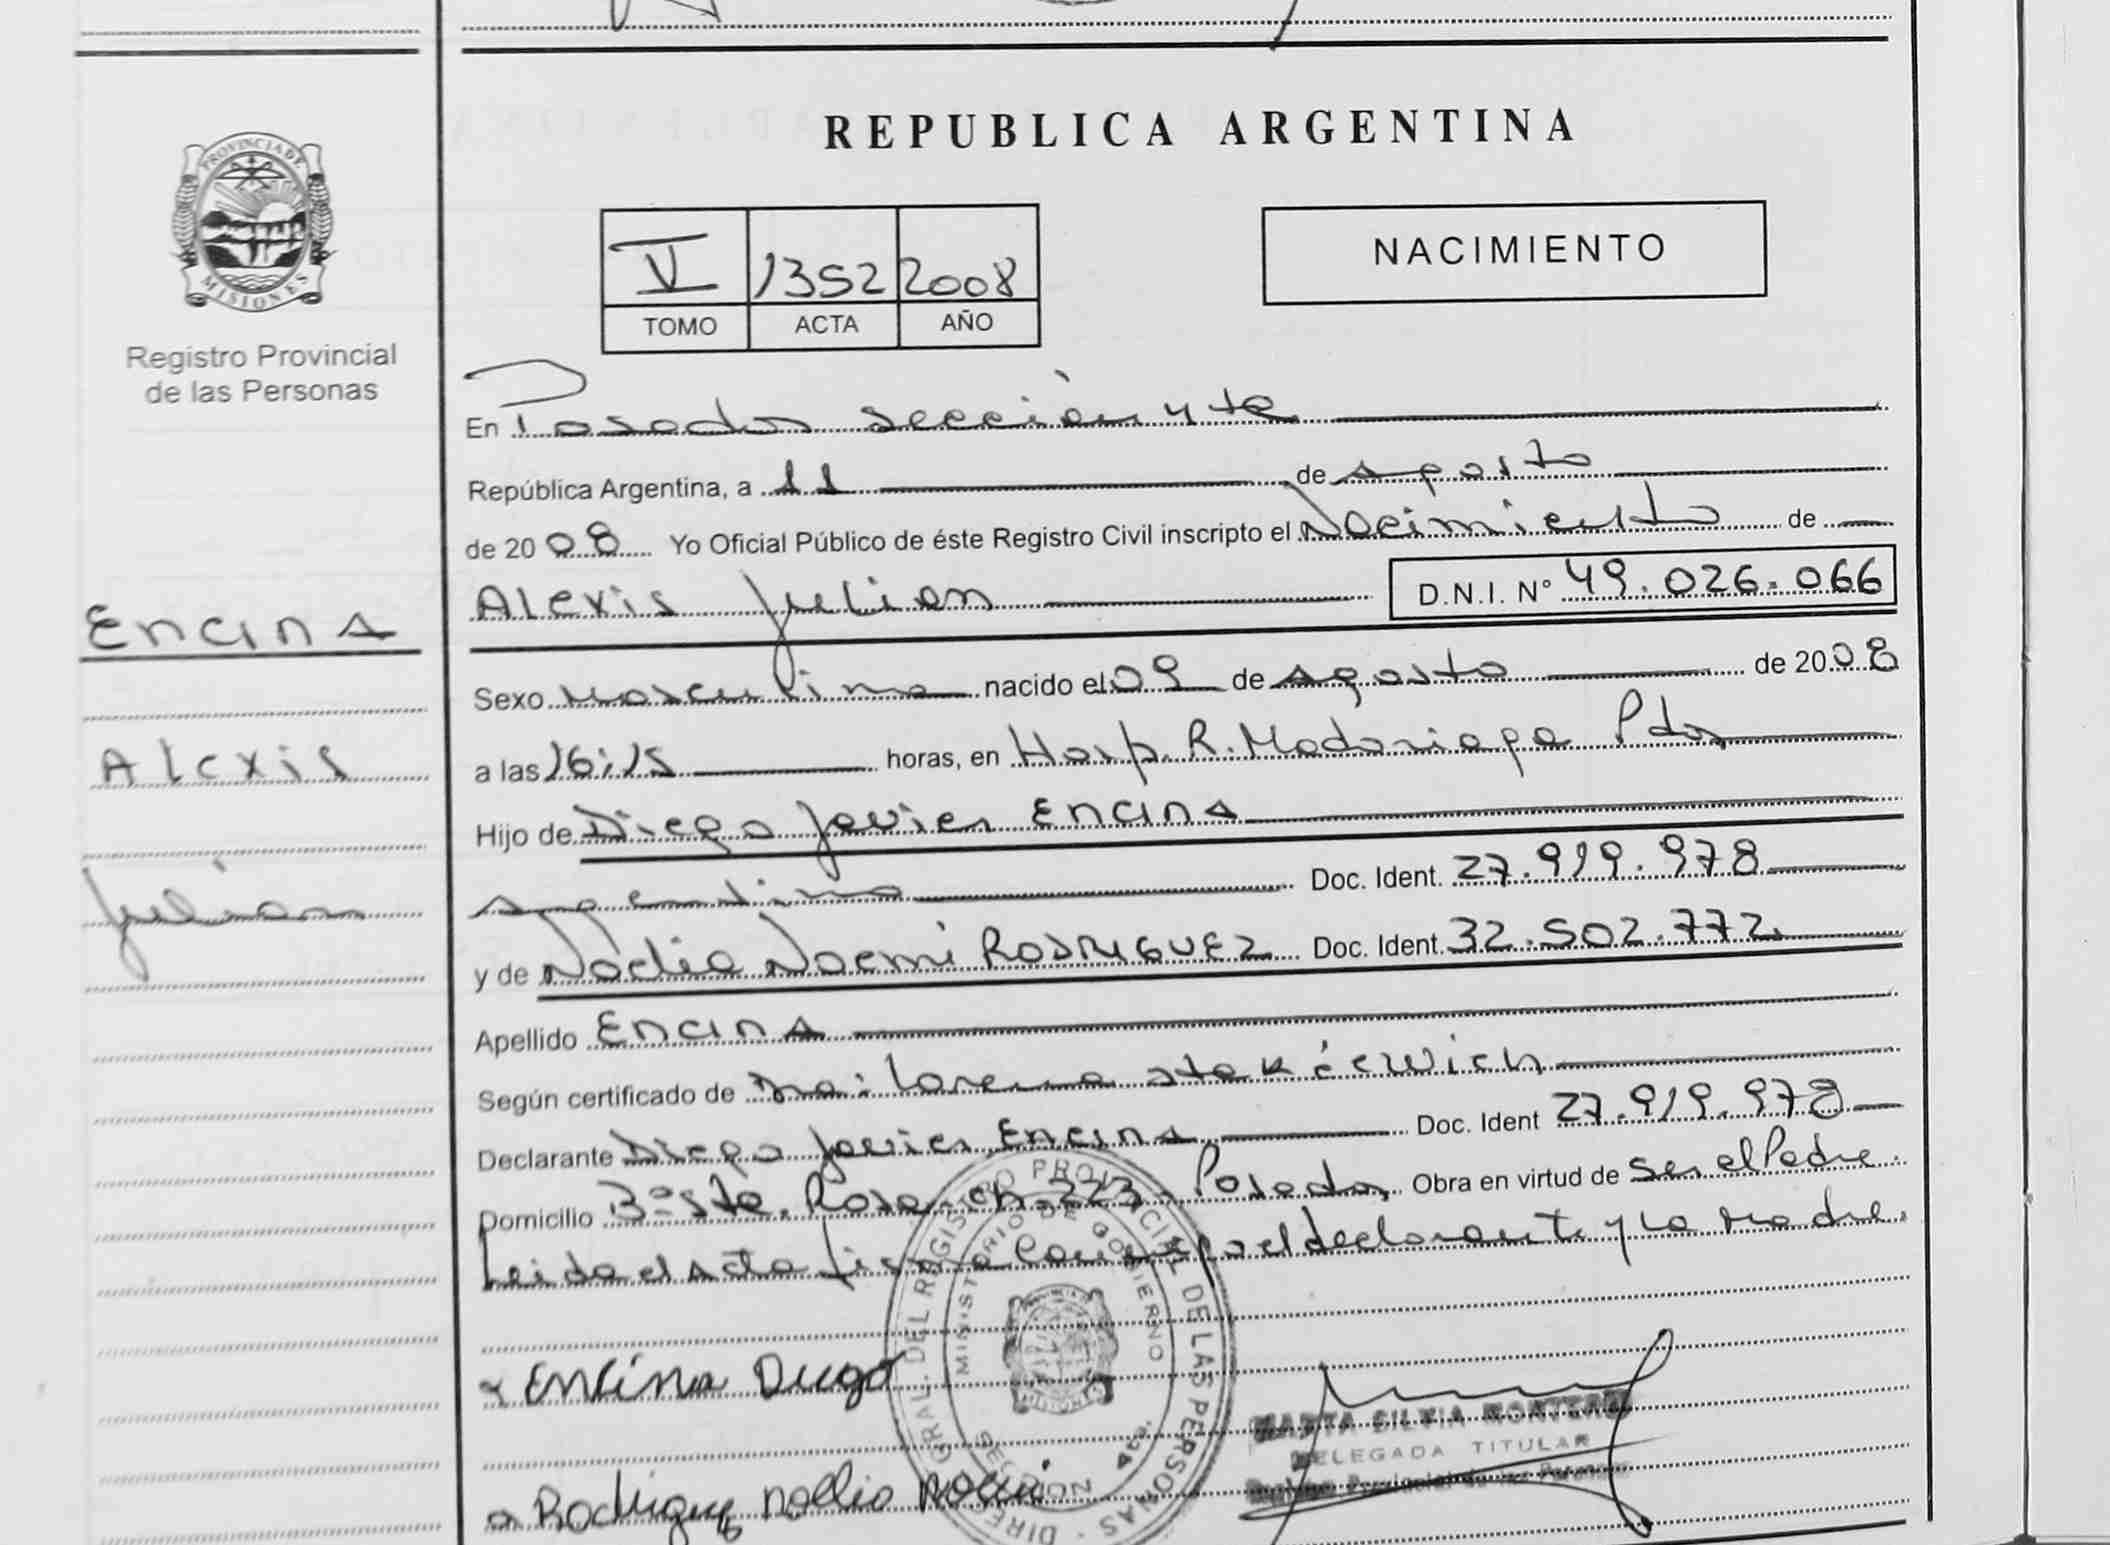 PROVINCIA DE
MISIONES
Registro Provincial
de las Personas
Encina
Alexis
Julian
REPUBLICA ARGENTINA
V 1352 2008
TOMO ACTA AÑO
NACIMIENTO
En Posadas sección 4ta
República Argentina, a 11 de agosto
de 2008 Yo Oficial Público de éste Registro Civil inscripto el Nacimiento de
Alexis Julian D.N.I. N° 49.026.066
Sexo masculino nacido el 09 de agosto de 2008
a las 16:15 horas, en Hosp. R. Madariaga Pdas
Hijo de Diego Javier Encina
argentino Doc. Ident. 27.919.978
y de Nadia Noemi RODRIGUEZ Doc. Ident. 32.502.772
Apellido Encina
Según certificado de Lorena
Declarante Diego Javier Encina Doc. Ident 27.919.978
Domicilio 223 Posadas Obra en virtud de ser el Padre
Leida el acta el declarante y la madre.
Encina Diego
Rodriguez
MARTA SILVIA MONTERO
DELEGADA TITULAR
Registro Provincial de las Personas
DIREC GRAL. DEL REGISTRO PROVINCIAL DE LAS PERSONAS
MINISTERIO DE GOBIERNO
SECCION 4ta.